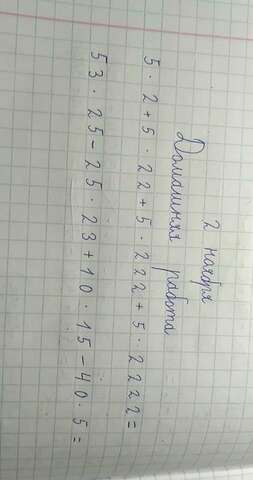 2 ноября
Домашняя работа
5 · 2 + 5 · 22 + 5 · 222 + 5 · 2222 =
53 · 25 - 25 · 23 + 10 · 15 - 40 · 5 =